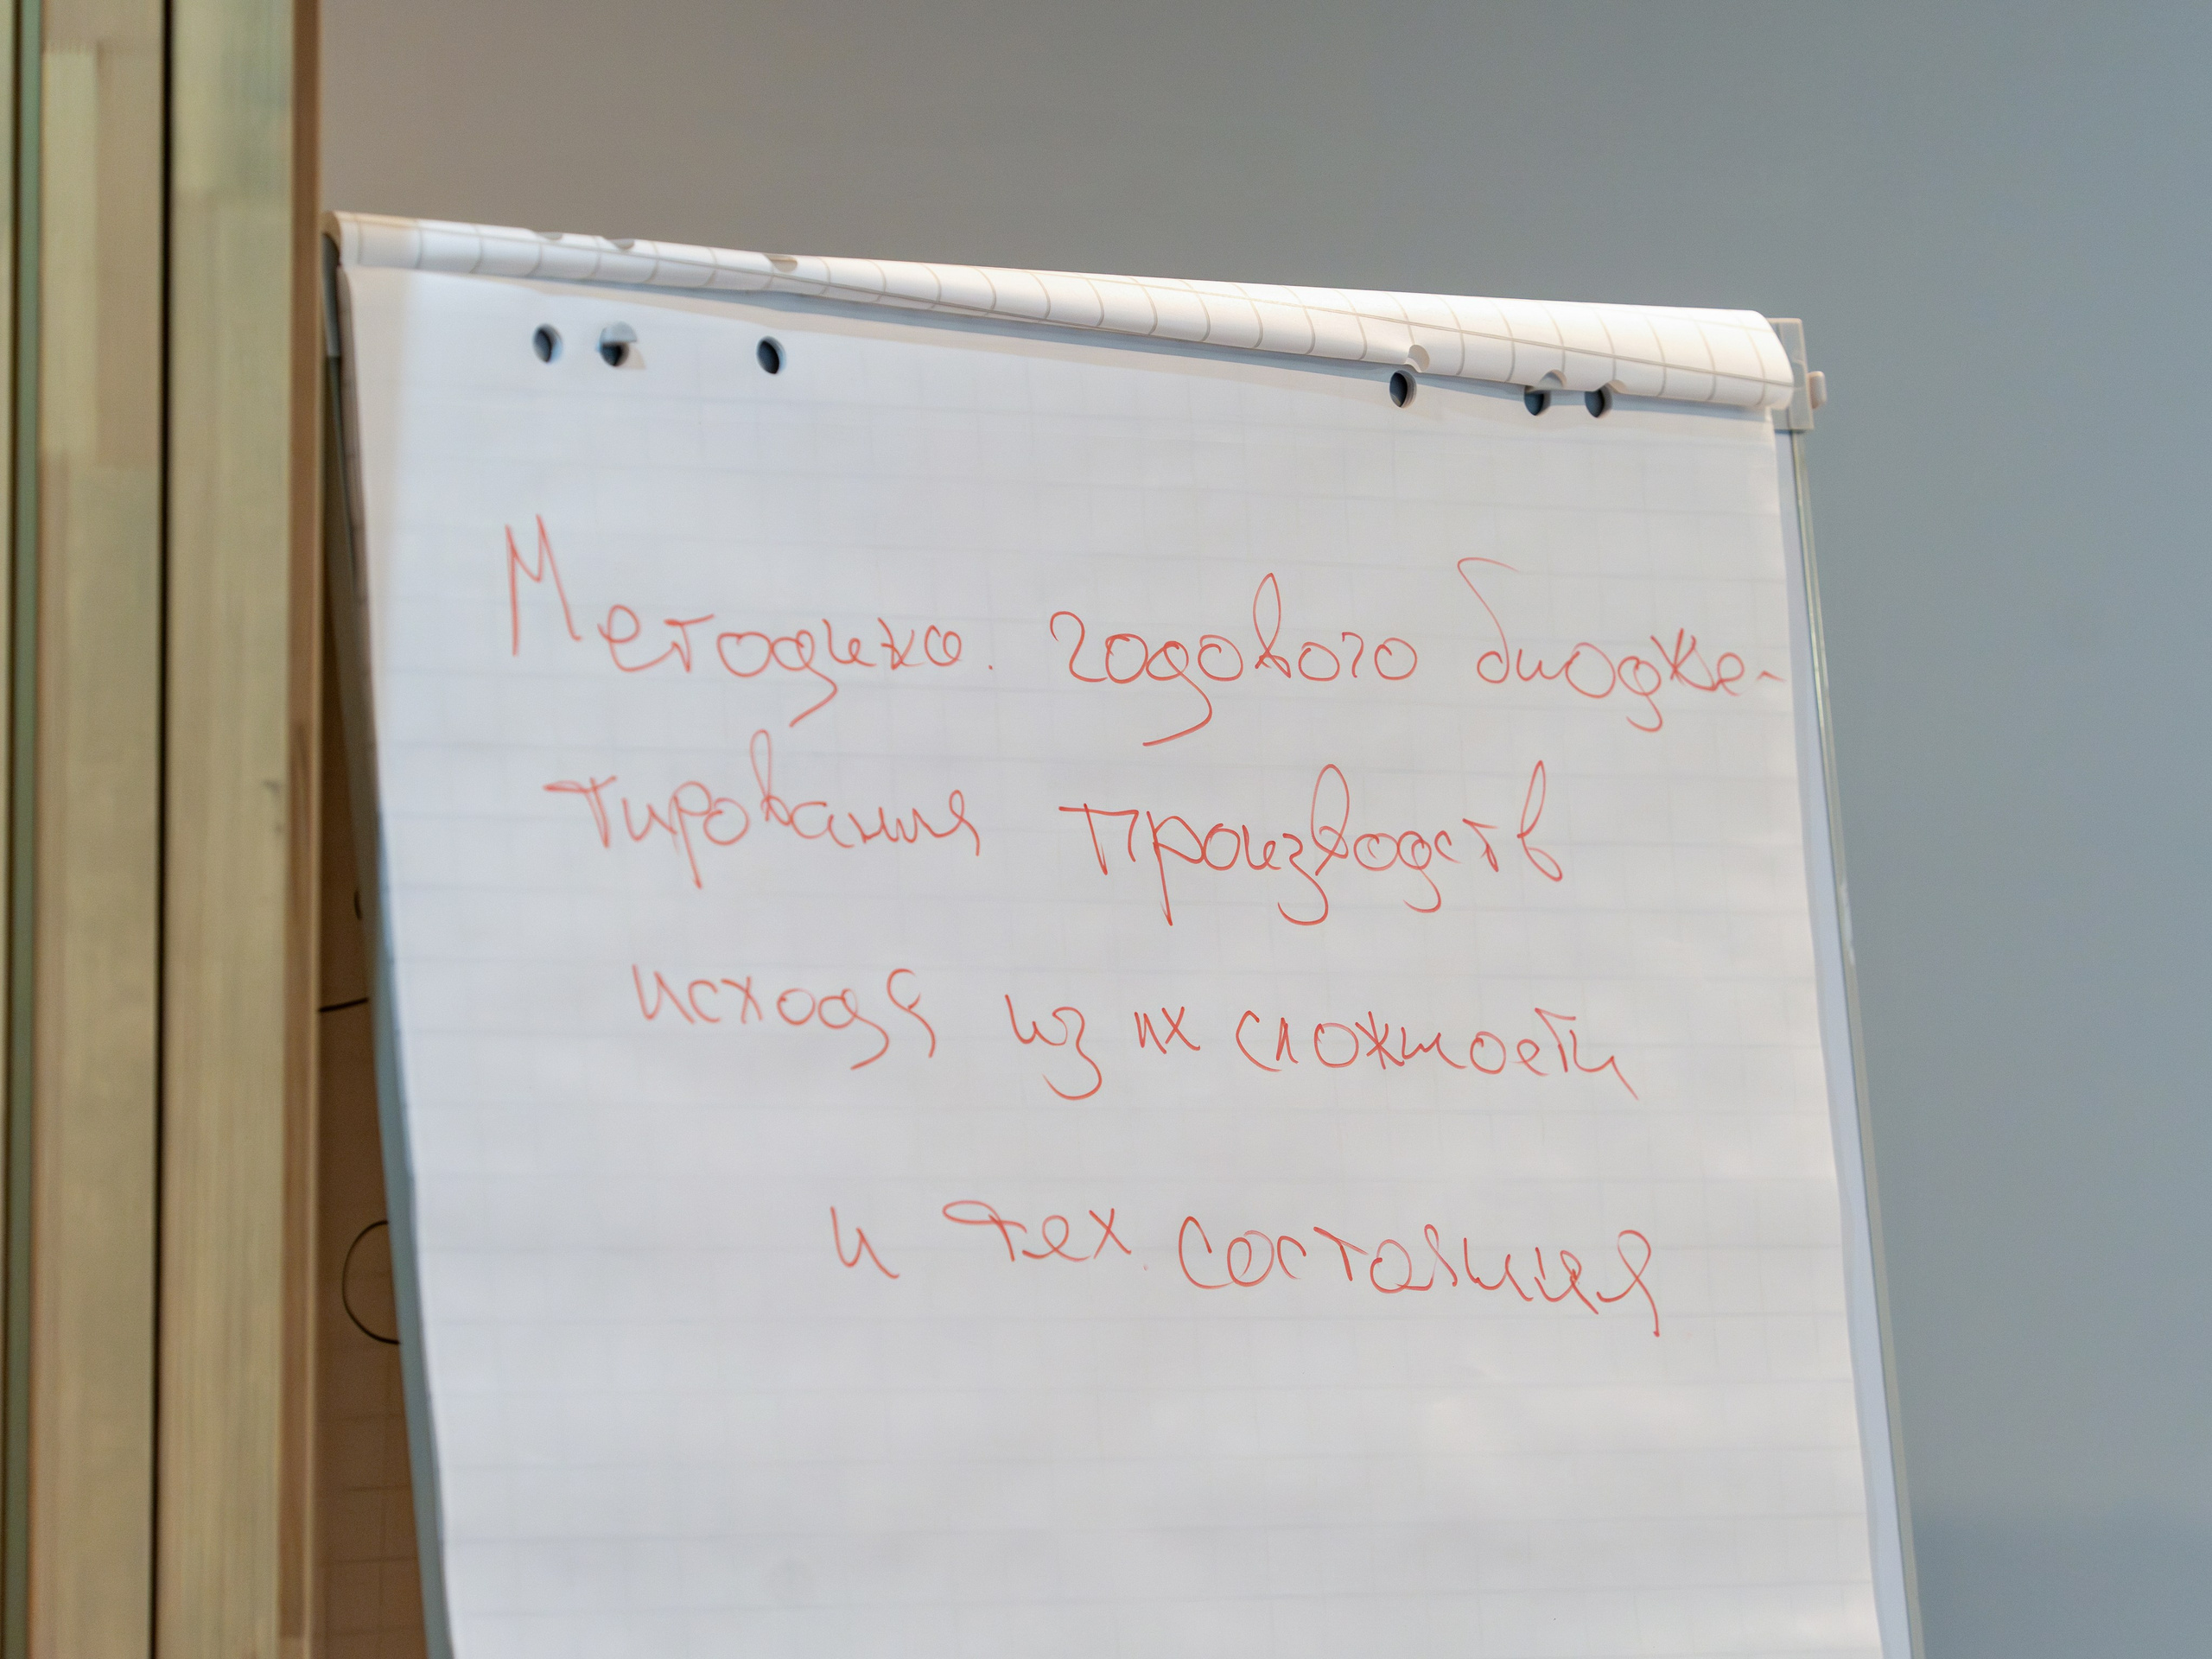 Методика годового бюдже-
тирования производств
исходя из их сложности
и тех. состояния